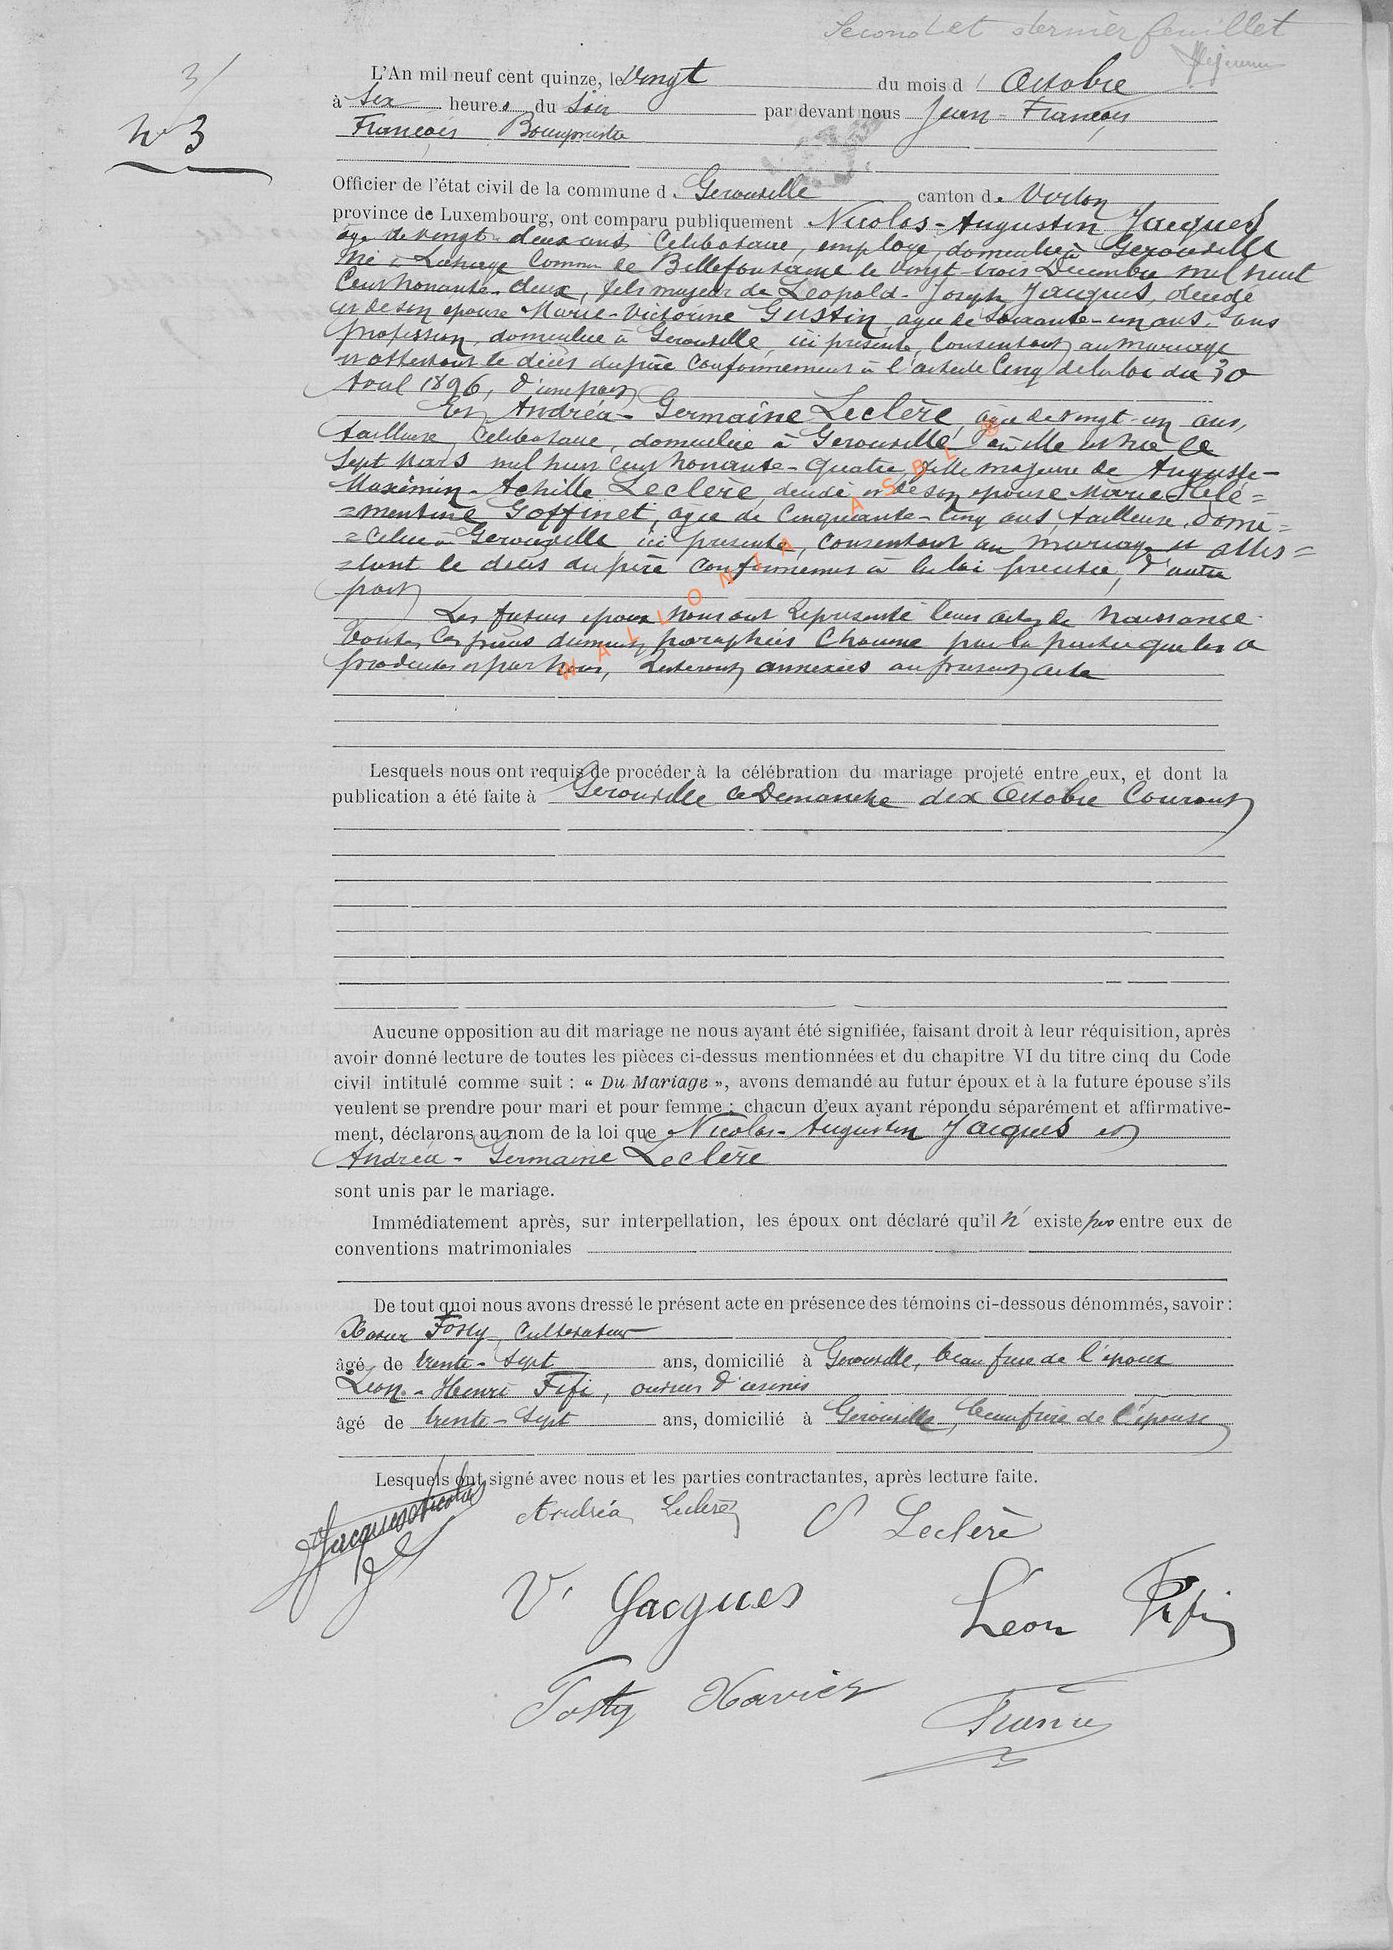 Second et dernier feuillet
3/
N° 3
L'An mil neuf cent quinze, le Vingt du mois d' Octobre
à Six heures du Soir par devant nous Jean-François
François Bourgmestre
Officier de l'état civil de la commune de Gerouville canton de Virton
province de Luxembourg, ont comparu publiquement Nicolas-Augustin Jacques
âgé de vingt-deux ans Célibataire, employé, domicilié à Gerouville
Né à Lahage Commune de Bellefontaine le Vingt trois Décembre mil huit
Cent nonante-deux, fils majeur de Léopold-Joseph Jacques, décédé
et de son épouse Marie-Victorine Gustin, âgée de Soixante-un ans, sans
profession, domiciliée à Gerouville, ici présente, Consentant au mariage
et attestant le décès du père Conformément à l'article Cinq de la loi du 30
Avril 1896, d'une part
Et Andréa-Germaine Leclère, âgée de vingt-un ans,
tailleuse, Célibataire, domiciliée à Gerouville où elle est née le
Sept Mars mil huit Cent nonante-Quatre, fille majeure de Auguste-
Maximin-Achille Leclère, décédé et de son épouse Marie Clé=
=mentine Goffinet, âgée de Cinquante-Cinq ans, tailleuse, domi=
=ciliée à Gerouville, ici présente, Consentant au mariage et attes=
=tant le décès du père Conformément à la loi précitée, d'autre
part
Les futurs époux nous ont représenté leurs actes de naissance.
Toutes Ces pièces dûment paraphées Chacune par la partie qui les a
produites et par nous, resteront annexées au présent acte
Lesquels nous ont requis de procéder à la célébration du mariage projeté entre eux, et dont la
publication a été faite à Gerouville le Dimanche dix Octobre Courant
Aucune opposition au dit mariage ne nous ayant été signifiée, faisant droit à leur réquisition, après
avoir donné lecture de toutes les pièces ci-dessus mentionnées et du chapitre VI du titre cinq du Code
civil intitulé comme suit : « Du Mariage », avons demandé au futur époux et à la future épouse s'ils
veulent se prendre pour mari et pour femme ; chacun d'eux ayant répondu séparément et affirmative-
ment, déclarons au nom de la loi que Nicolas-Augustin Jacques et
Andréa-Germaine Leclère
sont unis par le mariage.
Immédiatement après, sur interpellation, les époux ont déclaré qu'il n'existe pas entre eux de
conventions matrimoniales
De tout quoi nous avons dressé le présent acte en présence des témoins ci-dessous dénommés, savoir :
Xavier Fosty, Cultivateur
âgé de trente-sept ans, domicilié à Gerouville, beau frère de l'époux
Léon-Henri Fifi, ouvrier d'usines
âgé de trente-Sept ans, domicilié à Gerouville, beau frère de l'épouse
Lesquels ont signé avec nous et les parties contractantes, après lecture faite.
Jacques Nicolas
Andréa Leclère
Leclère
V. Jacques
Léon Fifi
Fosty Xavier
François
WALLONIA ASBL ®